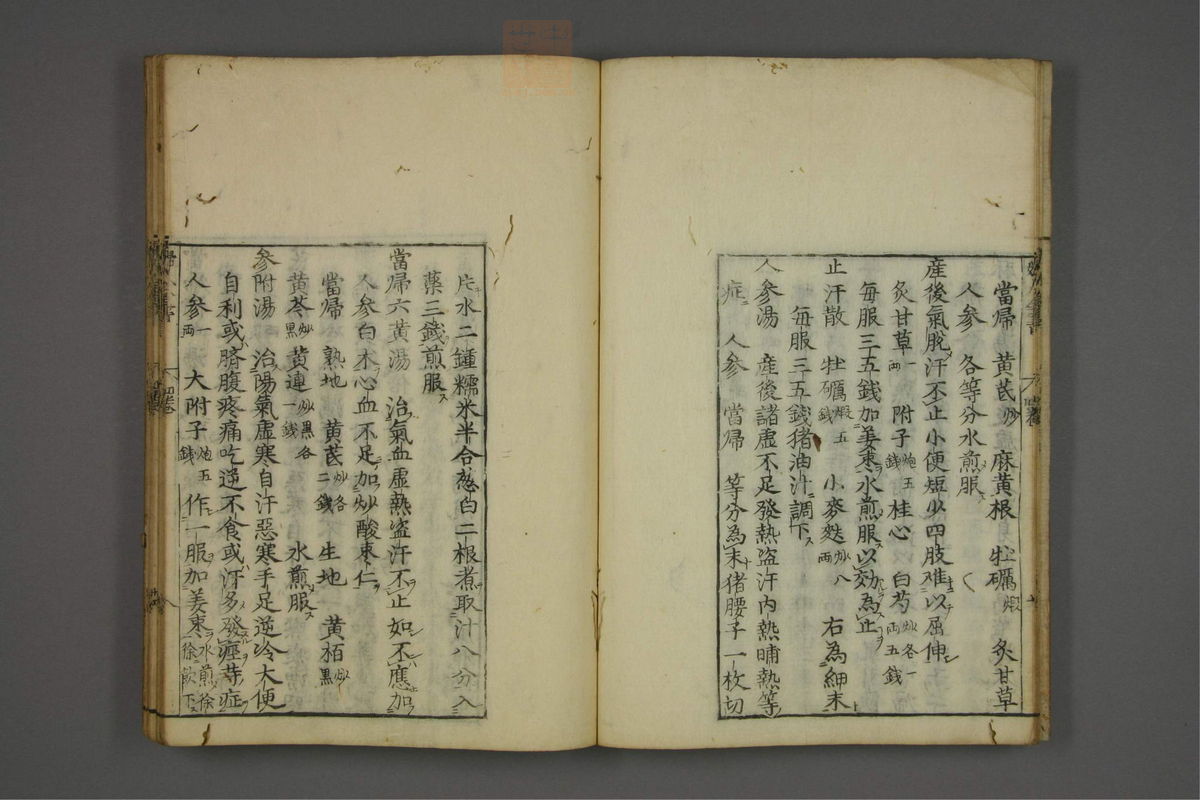 當帰 黄芪炒 麻黄根 牡礪煆 炙甘草
人参 各等分水煎服
産後氣脱汗不止小便短少四肢难以屈伸
炙甘草一両 附子炮五錢 桂心 白芍炒各一両五錢
毎服三五錢加姜枣水煎服以効為止
止汗散 牡礪煆五錢 小麥麩炒八両 右為細末
毎服三五錢猪油汁調下
人参湯 産後諸虚不足發熱盗汗内熱晡熱等
症 人参 當帰 等分為末猪腰子一枚切
片水二鍾糯米半合葱白二根煮取汁八分入
薬三錢煎服
當帰六黄湯 治氣血虚熱盗汗不止如不應加
人参白术心血不足加炒酸枣仁
當帰 熟地 黄芪炒各二錢 生地 黄栢炒黒
黄芩炒黒 黄連炒黒各一錢 水煎服
参附湯 治陽氣虚寒自汗惡寒手足逆冷大便
自利或臍腹疼痛吃逆不食或汗多發痙等症
人参一両 大附子炮五錢 作一服加姜枣水煎徐徐飲下